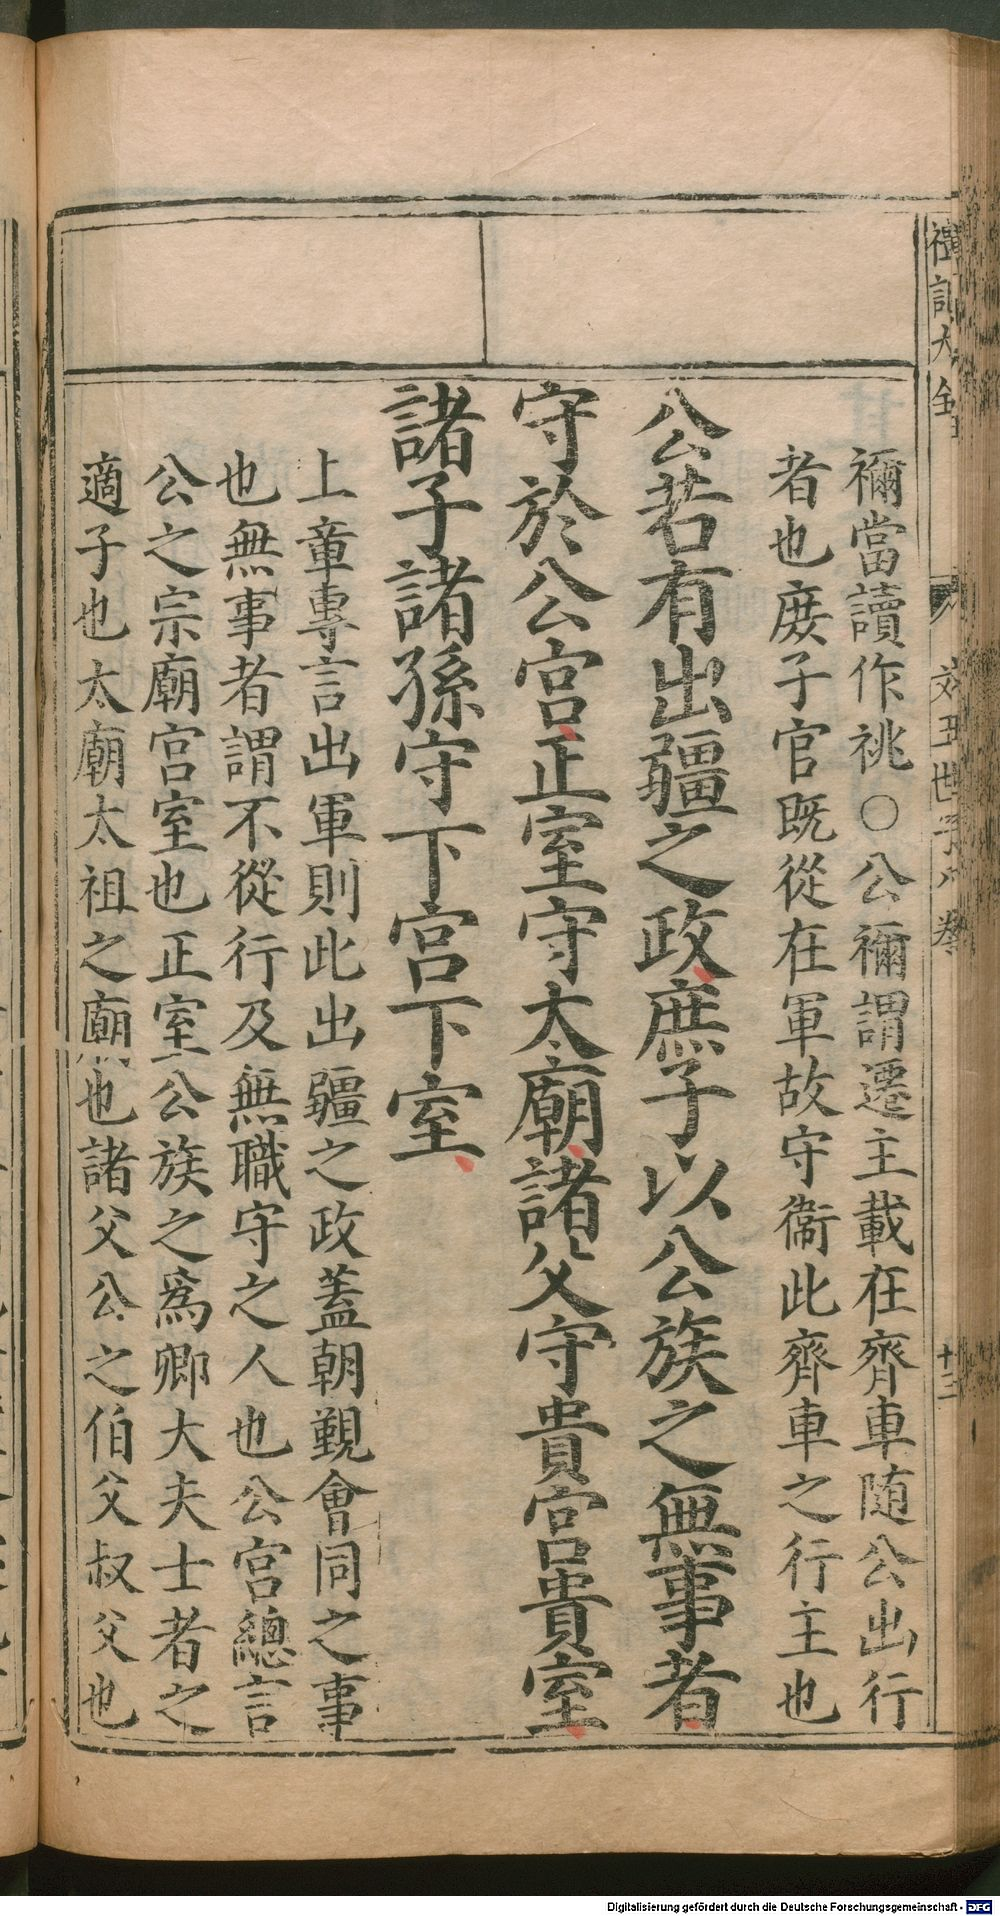 禮記大全 文王世子八卷 十三
禰當讀作祧○公禰謂遷主載在齊車随公出行
者也庻子官既從在軍故守衞此齊車之行主也
公若有出疆之政庶子以公族之無事者
守於公宮正室守太廟諸父守貴宮貴室
諸子諸孫守下宮下室
上章專言出軍則此出疆之政蓋朝覲會同之事
也無事者謂不從行及無職守之人也公宮總言
公之宗廟宮室也正室公族之爲卿大夫士者之
適子也太廟太祖之廟也諸父公之伯父叔父也
Digitalisierung gefördert durch die Deutsche Forschungsgemeinschaft - DFG